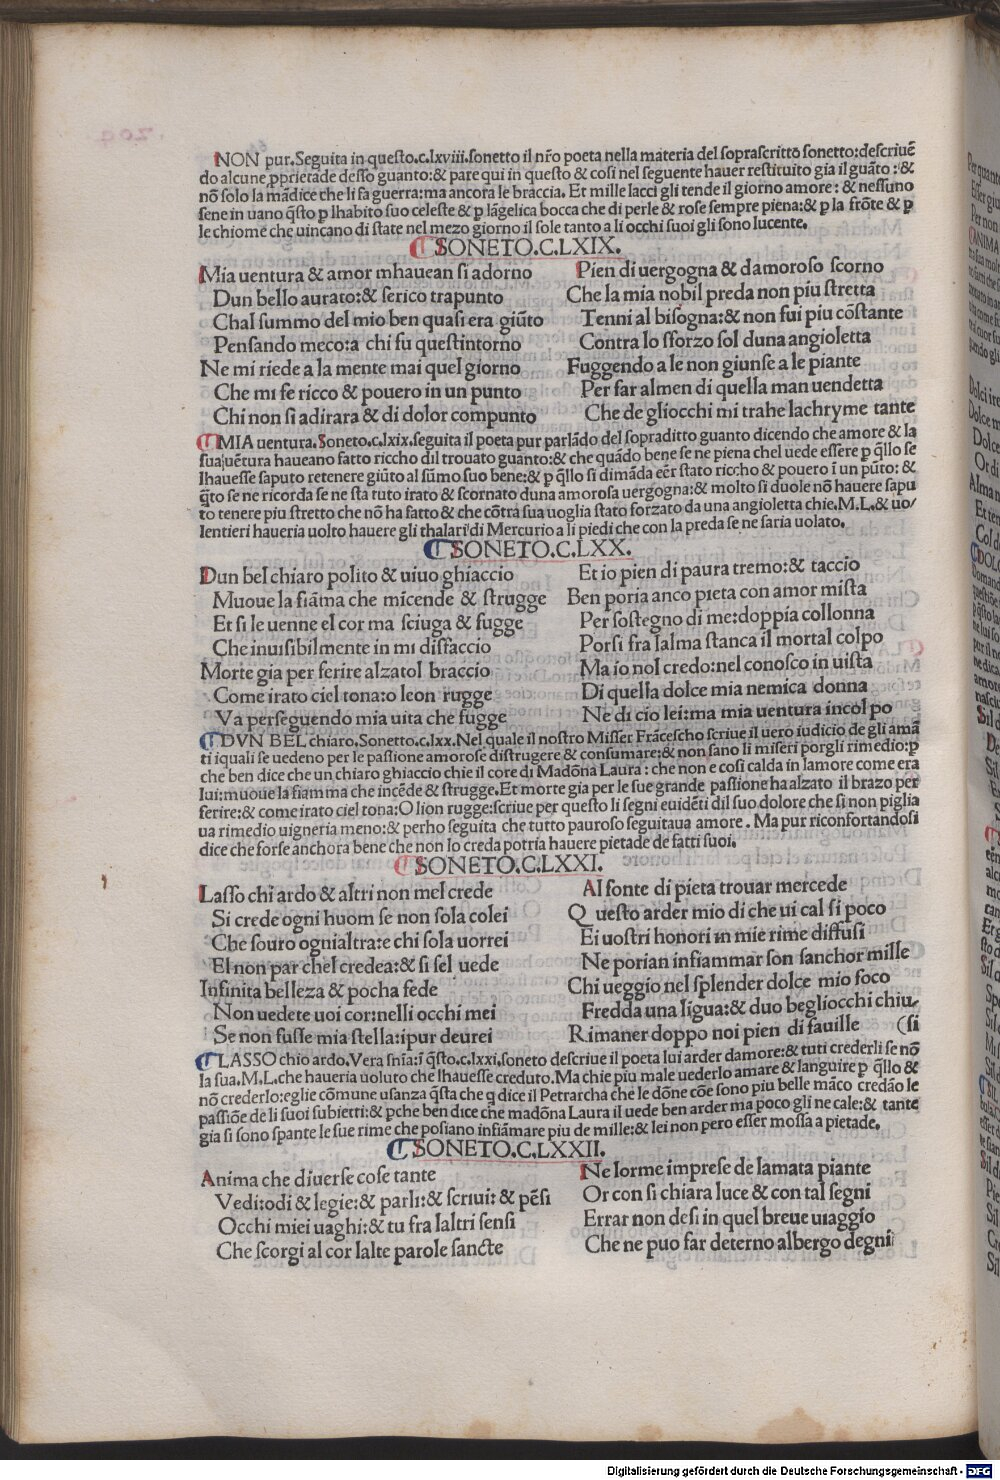 NON pur. Seguita in questo.c.lxviii.sonetto il nr̃o poeta nella materia del soprascritto sonetto:descriuẽ
do alcune ꝓprietade desso guanto:& pare qui in questo & cosi nel seguente hauer restituito gia il guãto : &
nõ solo la mãdice che li fa guerra:ma ancora le braccia. Et mille lacci gli tende il giorno amore : & nessuno
sene in uano q̃sto ꝑ lhabito suo celeste & ꝑ lãgelica bocca che di perle & rose sempre piena:& ꝑ la frõte & ꝑ
le chiome che uincano di state nel mezo giorno il sole tanto a li occhi suoi gli sono lucente.
SONETO.C.LXIX.
Mia uentura & amor mhauean si adorno
Dun bello aurato:& serico trapunto
Chal summo del mio ben quasi era giũto
Pensando meco:a chi fu questintorno
Ne mi riede a la mente mai quel giorno
Che mi fe ricco & pouero in un punto
Chi non si adirara & di dolor compunto
Pien di uergogna & damoroso scorno
Che la mia nobil preda non piu stretta
Tenni al bisogna:& non fui piu cõstante
Contra lo sforzo sol duna angioletta
Fuggendo a le non giunse a le piante
Per far almen di quella man uendetta
Che de gliocchi mi trahe lachryme tante
MIA uentura. Soneto.c.lxix.seguita il poeta pur parlãdo del sopraditto guanto dicendo che amore & la
sua uẽtura haueano fatto riccho dil trouato guanto:& che quãdo bene se ne piena chel uede essere ꝑ q̃llo se
lhauesse saputo retenere giũto al sũmo suo bene:& ꝑ q̃llo si dimãda eẽr stato riccho & pouero ĩ un pũto: &
q̃to se ne ricorda se ne sta tuto irato & scornato duna amorosa uergogna:& molto si duole nõ hauere sapu
to tenere piu stretto che nõ ha fatto & che cõtra sua uoglia stato forzato da una angioletta chie.M.L.& uo/
lentieri haueria uolto hauere gli thalari di Mercurio a li piedi che con la preda se ne saria uolato.
SONETO.C.LXX.
Dun bel chiaro polito & uiuo ghiaccio
Muoue la fiãma che mĩcende & strugge
Et si le uenne el cor ma sciuga & sugge
Che inuisibilmente in mi disfaccio
Morte gia per ferire alzatol braccio
Come irato ciel tona:o leon rugge
Va perseguendo mia uita che fugge
Et io pien di paura tremo:& taccio
Ben poria anco pieta con amor mista
Per sostegno di me:doppia collonna
Porsi fra lalma stanca il mortal colpo
Ma io nol credo:nel conosco in uista
Di quella dolce mia nemica donna
Ne di cio lei:ma mia uentura incolpo
DVN BEL chiaro.Sonetto.c.lxx.Nel quale il nostro Misser Frãcescho scriue il uero iudicio de gli amã
ti iquali se uedeno per le passione amorose distrugere & consumare:& non sano li miseri porgli rimedio:ꝑ
che ben dice che un chiaro ghiaccio chie il core di Madõna Laura : che non e cosi calda in lamore come era
lui:muoue la fiamma che incẽde & strugge.Et morte gia per le sue grande passione ha alzato il brazo per
ferire:& come irato ciel tona:O lion rugge:scriue per questo li segni euidẽti dil suo dolore che si non piglia
ua rimedio uigneria meno:& perho seguita che tutto pauroso seguitaua amore . Ma pur riconfortandosi
dice che forse anchora bene che non lo creda potria hauere pietade de fatti suoi.
SONETO.C.LXXI.
Lasso chi ardo & altri non mel crede
Si crede ogni huom se non sola colei
Che souro ognialtra:e chi sola uorrei
El non par chel credea:& si sel uede
Infinita belleza & pocha fede
Non uedete uoi cor:nelli occhi mei
Se non fusse mia stella:ipur deurei
Al fonte di pieta trouar mercede
Q uesto arder mio di che ui cal si poco
Ei uostri honori in mie rime diffusi
Ne porian infiammar son sanchor mille
Chi ueggio nel splender dolce mio foco
Fredda una ligua:& duo begliocchi chiu/
Rimaner doppo noi pien di fauille (si
LASSO chio ardo.Vera snĩa:ĩ q̃sto.c.lxxi.soneto descriue il poeta lui arder damore:& tuti crederli se nõ
la sua.M.L.che haueria uoluto che lhauesse creduto.Ma chie piu male uederlo amare & languire ꝑ q̃llo &
nõ crederlo:eglie cõmune usanza q̃sta che q dice il Petrarcha che le dõne cõe sono piu belle mãco credão le
passiõe de li suoi subietti:& ꝑche ben dice che madõna Laura il uede ben arder ma poco gli ne cale:& tante
gia si sono spante le sue rime che posiano infiãmare piu de mille:& lei non pero esser mossa a pietade.
SONETO.C.LXXII.
Anima che diuerse cose tante
Vedi:odi & legie:& parli:& scriui: & pẽsi
Occhi miei uaghi:& tu fra laltri sensi
Che scorgi al cor lalte parole sancte
Ne lorme imprese de lamata piante
Or con si chiara luce & con tal segni
Errar non desi in quel breue uiaggio
Che ne puo far deterno albergo degni
Digitalisierung gefördert durch die Deutsche Forschungsgemeinschaft - DFG